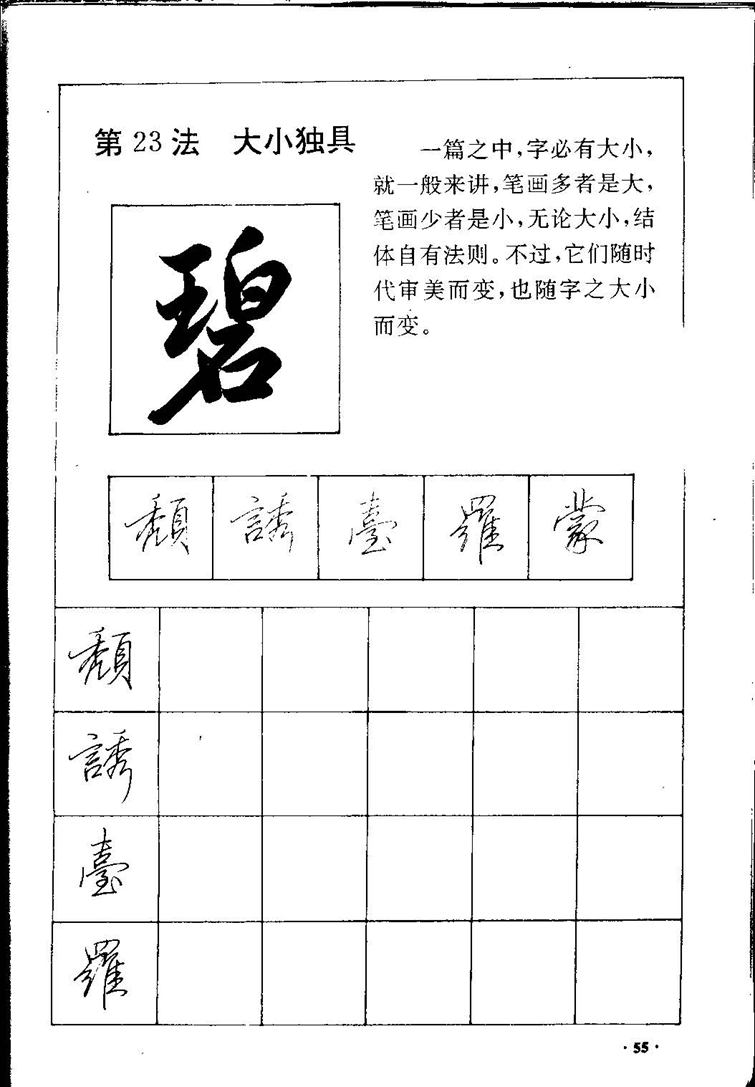 第23法 大小独具
一篇之中,字必有大小,
就一般来讲,笔画多者是大,
笔画少者是小,无论大小,结
体自有法则。不过,它们随时
代审美而变,也随字之大小
而变。
碧
頹 誘 臺 羅 蒙
頹
誘
臺
羅
·55·